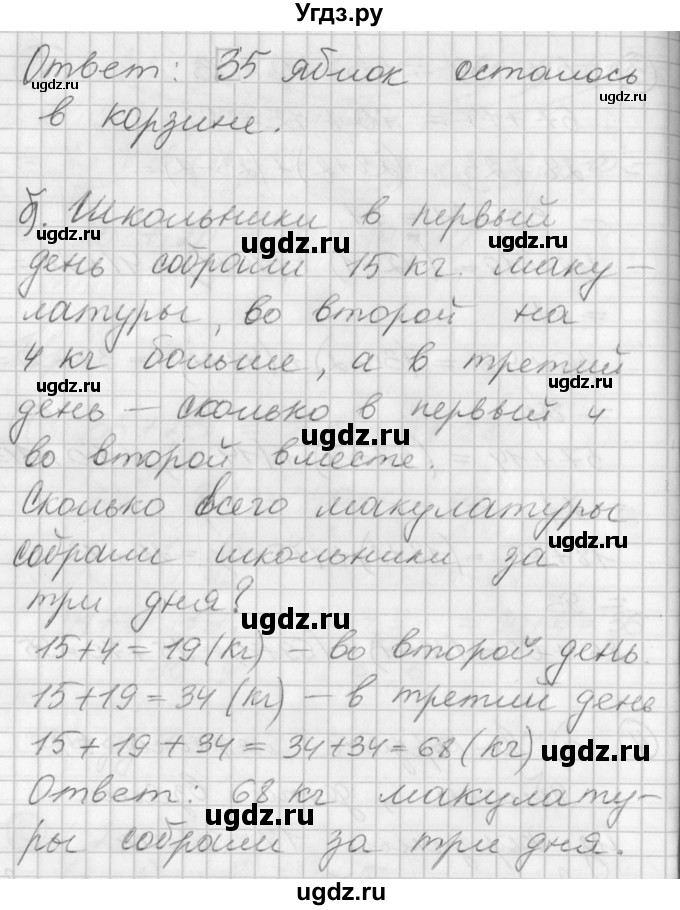 Угдз.ру
Ответ: 35 яблок осталось
ugdz.ru ugdz.ru
в корзине.
б). Школьники в первый
ugdz.ru ugdz.ru ugdz.ru
день собрали 15 кг. маку-
латуры, во второй на
ugdz.ru
4 кг больше, а в третий
ugdz.ru ugdz.ru
день – сколько в первый и
ugdz.ru
во второй вместе.
Сколько всего макулатуры
ugdz.ru
собрали школьники за
три дня?
ugdz.ru
15+4=19(кг) – во второй день.
15+19=34(кг) – в третий день
15+19+34=34+34=68(кг)
ugdz.ru
Ответ: 68 кг макулату-
ugdz.ru
ры собрали за три дня.
ugdz.ru